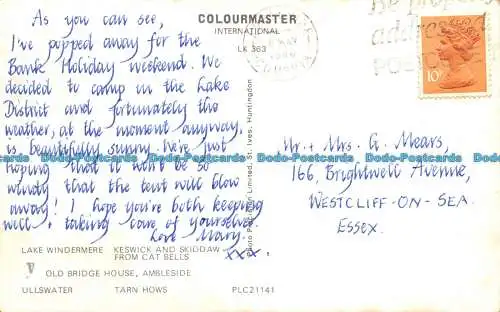 As you can see,
I've popped away for the
Bank Holiday weekend. We
decided to camp in the Lake
District and fortunately the
weather, at the moment anyway,
is beautifully sunny. We're just
hoping that it won't be so
windy that the tent will blow
away! I hope you're both keeping
well & taking care of yourselves.
Love Mary.
xxx.
LAKE WINDERMERE KESWICK AND SKIDDAW
FROM CAT BELLS
OLD BRIDGE HOUSE, AMBLESIDE
ULLSWATER TARN HOWS PLC21141
COLOURMASTER
INTERNATIONAL
LK 363
Photo Precision Limited St. Ives, Huntingdon
10P
Mr. & Mrs. G. Mears,
166, Brightwell Avenue,
WESTCLIFF-ON-SEA.
ESSEX.
Dodo-Postcards Dodo-Postcards Dodo-Postcards Dodo-Postcards